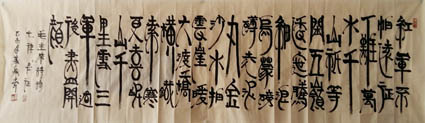 紅軍不
怕遠征
難萬
水千
山祇等
閒五嶺
逶迤騰
細浪
烏蒙磅
礴走泥
丸金
沙水拍
雲崖暖
大渡橋
橫鐵
索寒
更喜岷
山千
里雪三
軍過
後盡開
顏
毛主席詩
七律長征